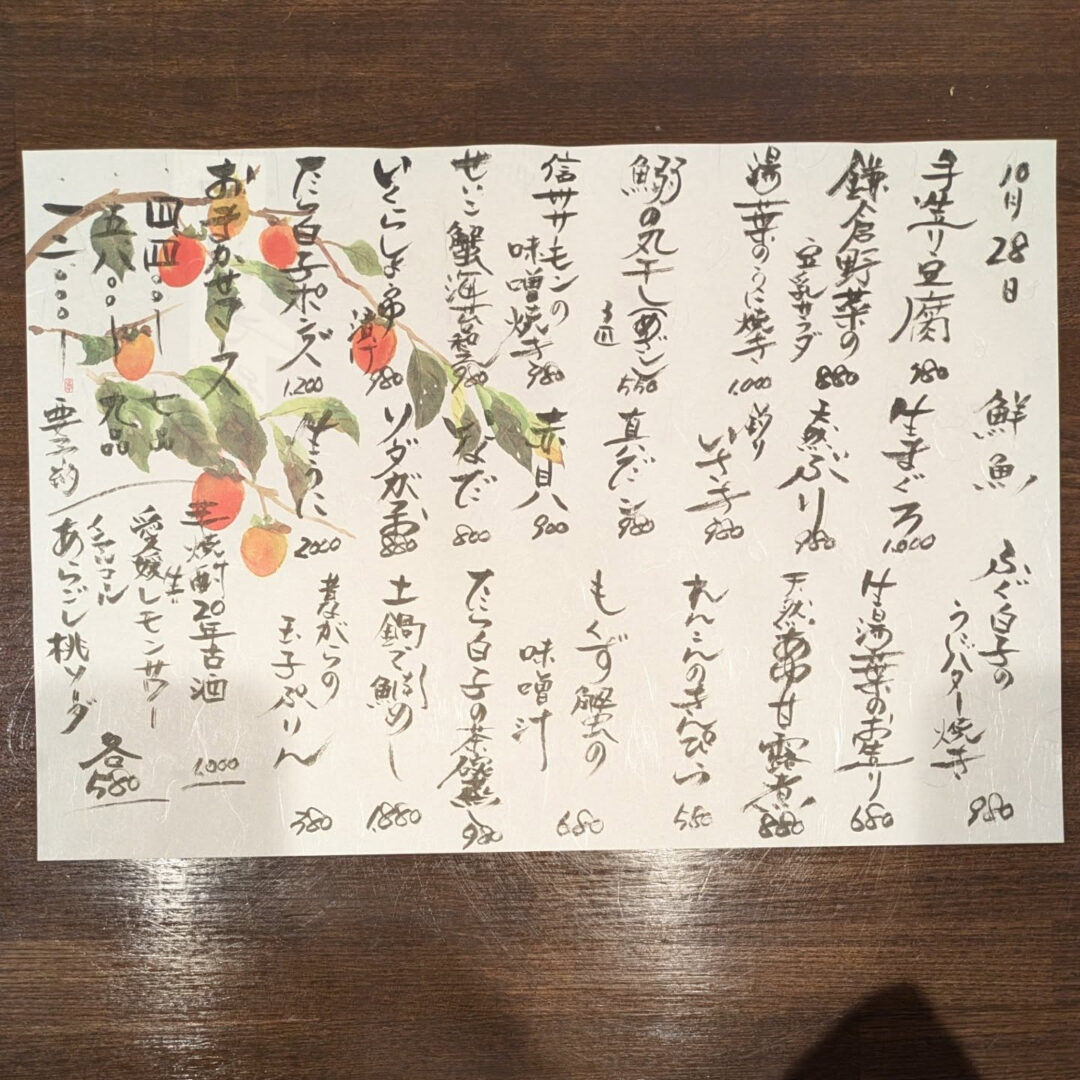 10月28日
手造り豆腐
380
鎌倉野菜の
豆乳サラダ
880
湯葉のうに焼き
1,000
鰯の丸干し
550
信州サーモンの
味噌焼き
980
せいこ蟹
980
いくらしょうゆ
漬け
980
たら白子ポンズ
1,200
おまかせコース
四四〇〇ー
七品
五八〇〇ー
九品
一二〇〇〇ー
要予約
鮮魚
生まぐろ
1,000
天然ぶり
980
釣り
いさき
980
真だこ
980
赤貝
900
なだ
800
ソウダガツオ
880
生うに
2000
ふぐ白子の
うにバター焼き
980
生湯葉のお造り
680
天然あゆ甘露煮
880
れんこんのきんぴら
550
もくず蟹の
味噌汁
680
たら白子の茶碗蒸し
980
土鍋で
鯛めし
1,880
昔ながらの
玉子ぷりん
380
芋焼酎20年古酒
1,000
生
愛媛レモンサワー
あらごし桃ソーダ
各580